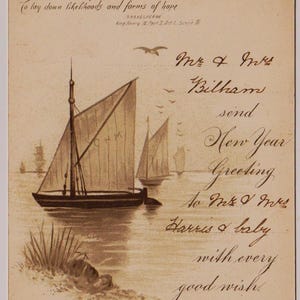 To lay down likelihoods and forms of hope
SHAKESPEARE
King Henry IV, Part 2, Act 1, Scene III
Mr & Mrs
Bilham
send
New Year
Greeting
to Mr & Mrs
Harris & baby
with every
good wish.